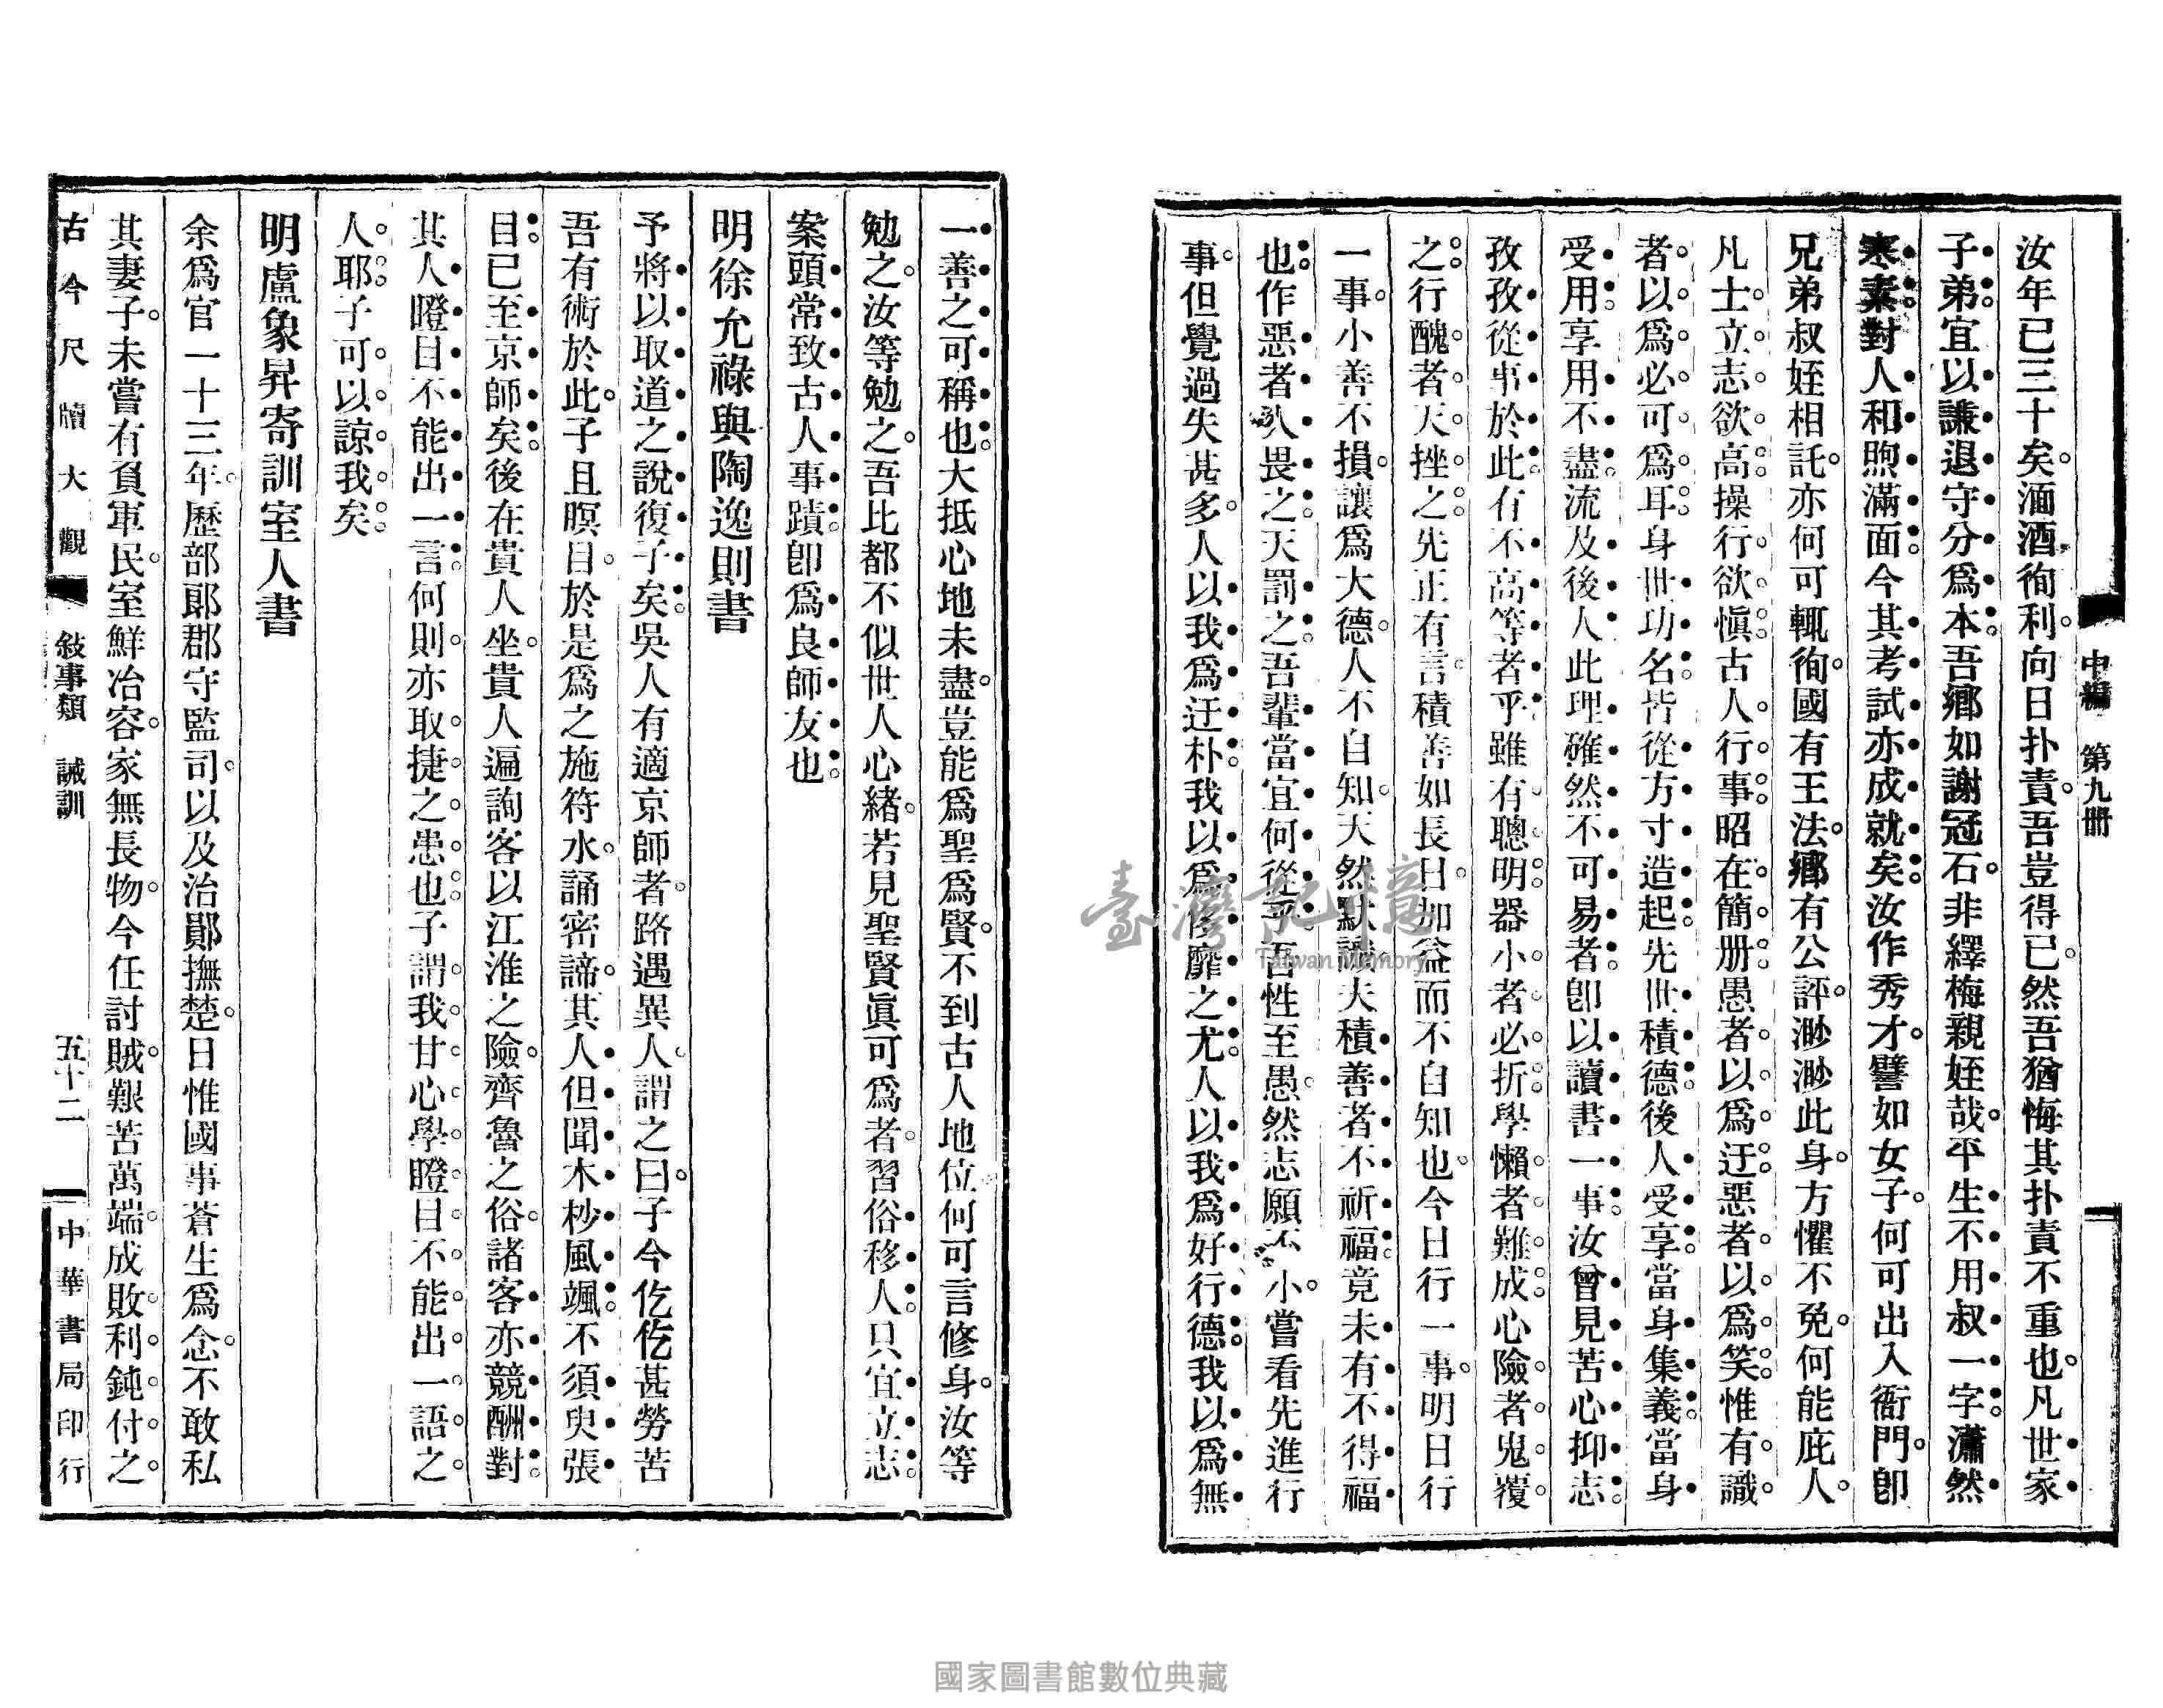 中編　第九冊
汝年已三十矣。湎酒徇利。向日扑責。吾豈得已。然吾猶悔其扑責不重也。凡世家
子弟宜以謙退守分爲本。吾鄉如謝冠石。非繹梅親姪哉。平生不用叔一字。瀟然
寒素。對人和煦滿面。今其考試亦成就矣。汝作秀才。譬如女子。何可出入衙門。卽
兄弟叔姪相託。亦何可輒徇。國有王法。鄉有公評。渺渺此身。方懼不免。何能庇人。
凡士立志欲高。操行欲愼。古人行事。昭在簡册。愚者以爲迂。惡者以爲笑。惟有識
者以爲必可爲耳。身世功名。皆從方寸造起。先世積德。後人受享。當身集義。當身
受用。享用不盡。流及後人。此理確然不可易者。卽以讀書一事。汝曾見苦心抑志。
孜孜從事於此。有不高等者乎。雖有聰明。器小者必折。學懶者難成。心險者鬼覆
之。行醜者天挫之。先正有言。積善如長日加益而不自知也。今日行一事。明日行
一事。小善不損。讓爲大德。人不自知。天然默識。夫積善者不祈福。竟未有不得福
也。作惡者人畏之。天罰之。吾輩當宜何從乎。吾性至愚。然志願不小。嘗看先進行
事。但覺過失甚多。人以我爲迂朴。我以爲侈靡之尤。人以我爲好行德。我以爲無
一善之可稱也。大抵心地未盡。豈能爲聖爲賢。不到古人地位。何可言修身。汝等
勉之。汝等勉之。吾比都不似世人心緒。若見聖賢眞可爲者。習俗移人。只宜立志。
案頭常致古人事蹟。卽爲良師友也。
明徐允祿與陶逸則書
予將以取道之說復子矣。吳人有適京師者。路遇異人。謂之曰。子今仡仡甚勞苦
吾有術於此。子且瞑目。於是爲之施符水。誦密諦。其人但聞木杪風颯。不須臾張
目。已至京師矣。後在貴人坐。貴人遍詢客以江淮之險。齊魯之俗。諸客亦競酬對。
其人瞪目不能出一言。何則。亦取捷之患也。子謂我甘心學瞪目不能出一語之
人耶。子可以諒我矣。
明盧象昇寄訓室人書
余爲官一十三年。歷部郎郡守監司。以及治鄖撫楚。日惟國事蒼生爲念。不敢私
其妻子。未嘗有負軍民。室鮮冶容。家無長物。今任討賊。艱苦萬端。成敗利鈍付之。
古今尺牘大觀　敍事類　誡訓　五十二　中華書局印行
臺灣記憶
Taiwan Memory
國家圖書館數位典藏